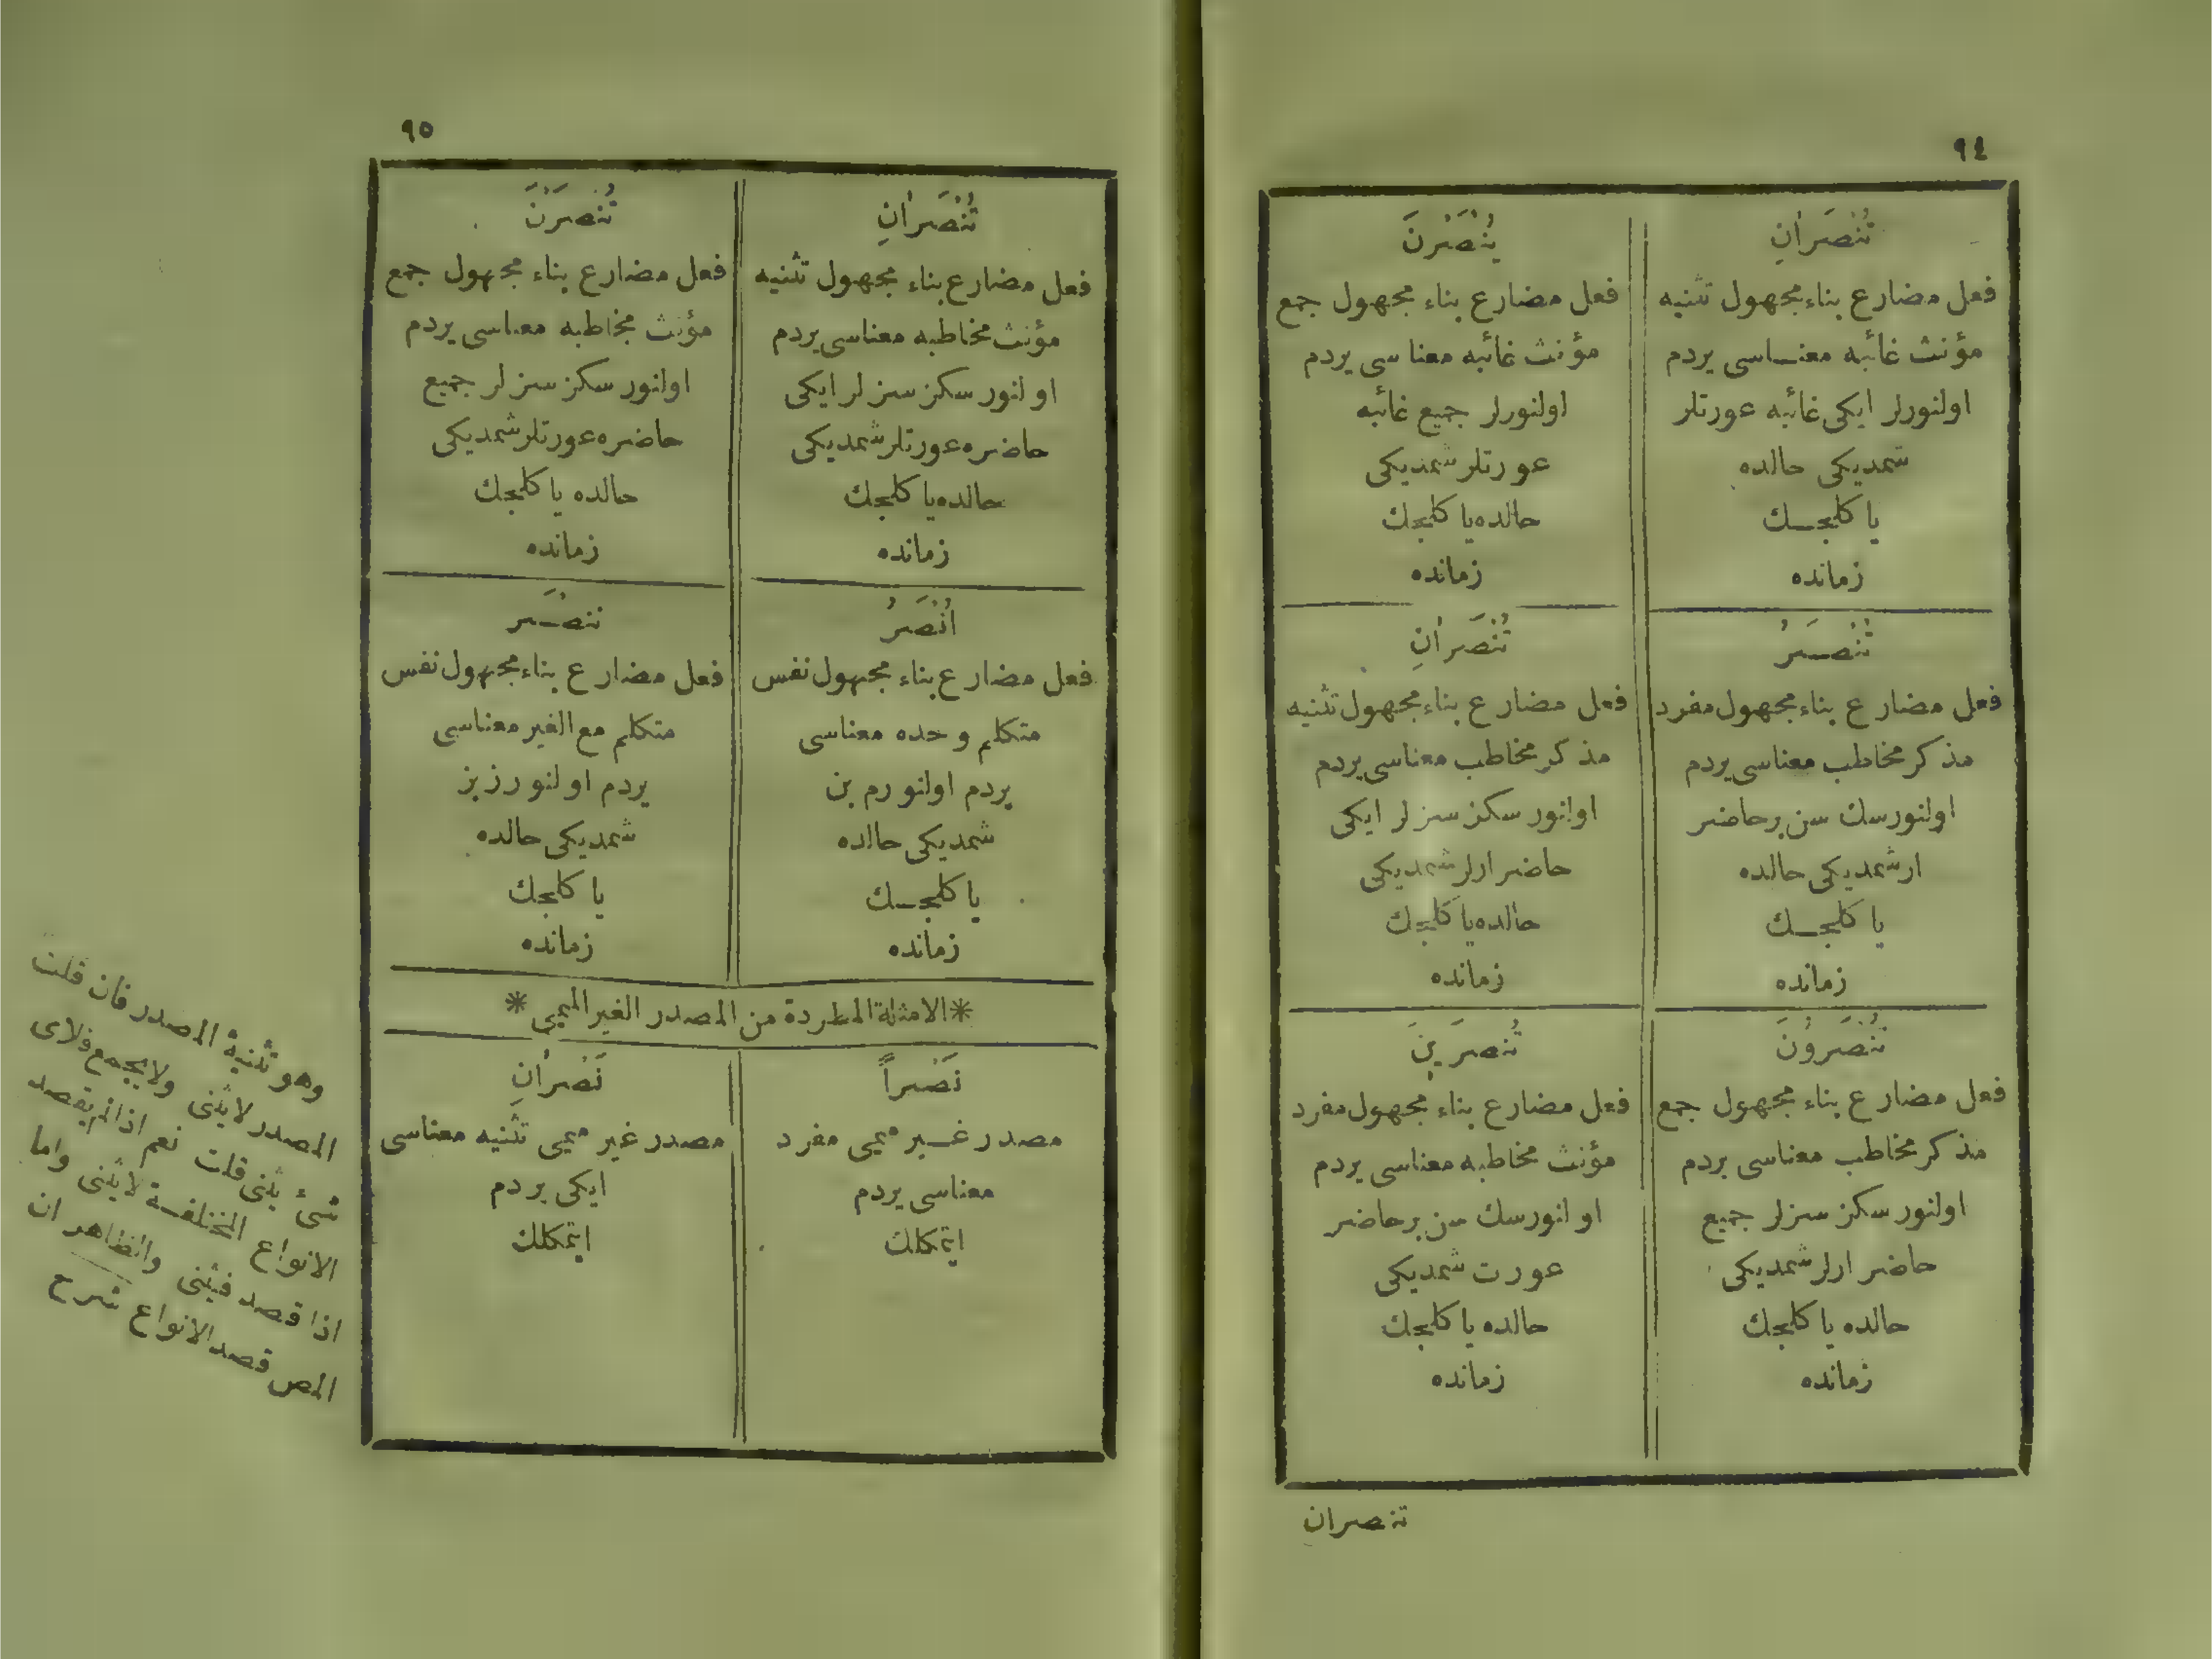 ٩٤
تُنْصَرَانِ
فعل مضارع بناء مجهول تثنيه
مؤنث غائبه معناسى يردم
اولنورلر ايكى غائبه عورتلر
شمديكى حالده
يا كلجك
زمانده
يُنْصَرْنَ
فعل مضارع بناء مجهول جمع
مؤنث غائبه معناسى يردم
اولنورلر جميع غائبه
عورتلر شمديكى
حالده يا كلجك
زمانده
تُنْصَرُ
فعل مضارع بناء مجهول مفرد
مذكر مخاطب معناسى يردم
اولنورسك سن بر حاضر
ار شمديكى حالده
يا كلجك
زمانده
تُنْصَرَانِ
فعل مضارع بناء مجهول تثنيه
مذكر مخاطب معناسى يردم
اولنورسكز سزلر ايكى
حاضر ارلر شمديكى
حالده يا كلجك
زمانده
تُنْصَرُونَ
فعل مضارع بناء مجهول جمع
مذكر مخاطب معناسى يردم
اولنورسكز سزلر جميع
حاضر ارلر شمديكى
حالده يا كلجك
زمانده
تُنْصَرِينَ
فعل مضارع بناء مجهول مفرد
مؤنث مخاطبه معناسى يردم
اولنورسك سن بر حاضر
عورت شمديكى
حالده يا كلجك
زمانده
تنصران
٩٥
تُنْصَرَانِ
فعل مضارع بناء مجهول تثنيه
مؤنث مخاطبه معناسى يردم
اولنورسكز سزلر ايكى
حاضره عورتلر شمديكى
حالده يا كلجك
زمانده
تُنْصَرْنَ
فعل مضارع بناء مجهول جمع
مؤنث مخاطبه معناسى يردم
اولنورسكز سزلر جميع
حاضره عورتلر شمديكى
حالده يا كلجك
زمانده
اُنْصَرُ
فعل مضارع بناء مجهول نفس
متكلم وحده معناسى
يردم اولنورم بن
شمديكى حالده
يا كلجك
زمانده
ننصر
فعل مضارع بناء مجهول نفس
متكلم مع الغير معناسى
يردم اولنورز بز
شمديكى حالده
يا كلجك
زمانده
*الامثلة المطردة من المصدر الغير الميمى*
نَصْراً
مصدر غير ميمى مفرد
معناسى يردم
ايتمكلك
نَصْرَانِ
مصدر غير ميمى تثنيه معناسى
ايكى يردم
ايتمكلك
وهو تثنية المصدر فان قلت
المصدر لايثنى ولايجمع فلاى
شئ يثنى قلت نعم اذا لم يقصد
الانواع المختلفة لايثنى واما
اذا قصد فيثنى والظاهر ان
المص قصد الانواع شرح